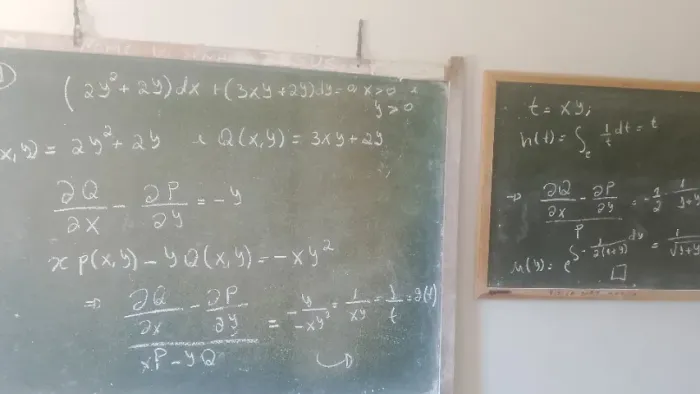 (2y² + 2y)dx + (3xy + 2y)dy = 0 x>0
y>0
x,y) = 2y² + 2y Q(x,y) = 3xy + 2y
∂Q/∂x - ∂P/∂y = -y
x P(x,y) - y Q(x,y) = -xy²
⇒ (∂Q/∂x - ∂P/∂y)/(xP - yQ) = -y/-xy² = 1/xy = 1/t = g(t)
t = xy;
h(t) = ∫ 1/t dt = t
⇒ (∂Q/∂x - ∂P/∂y)/P = -1/2 1/1+y
μ(y) = e^∫-1/2(1+y) dy = 1/√1+y